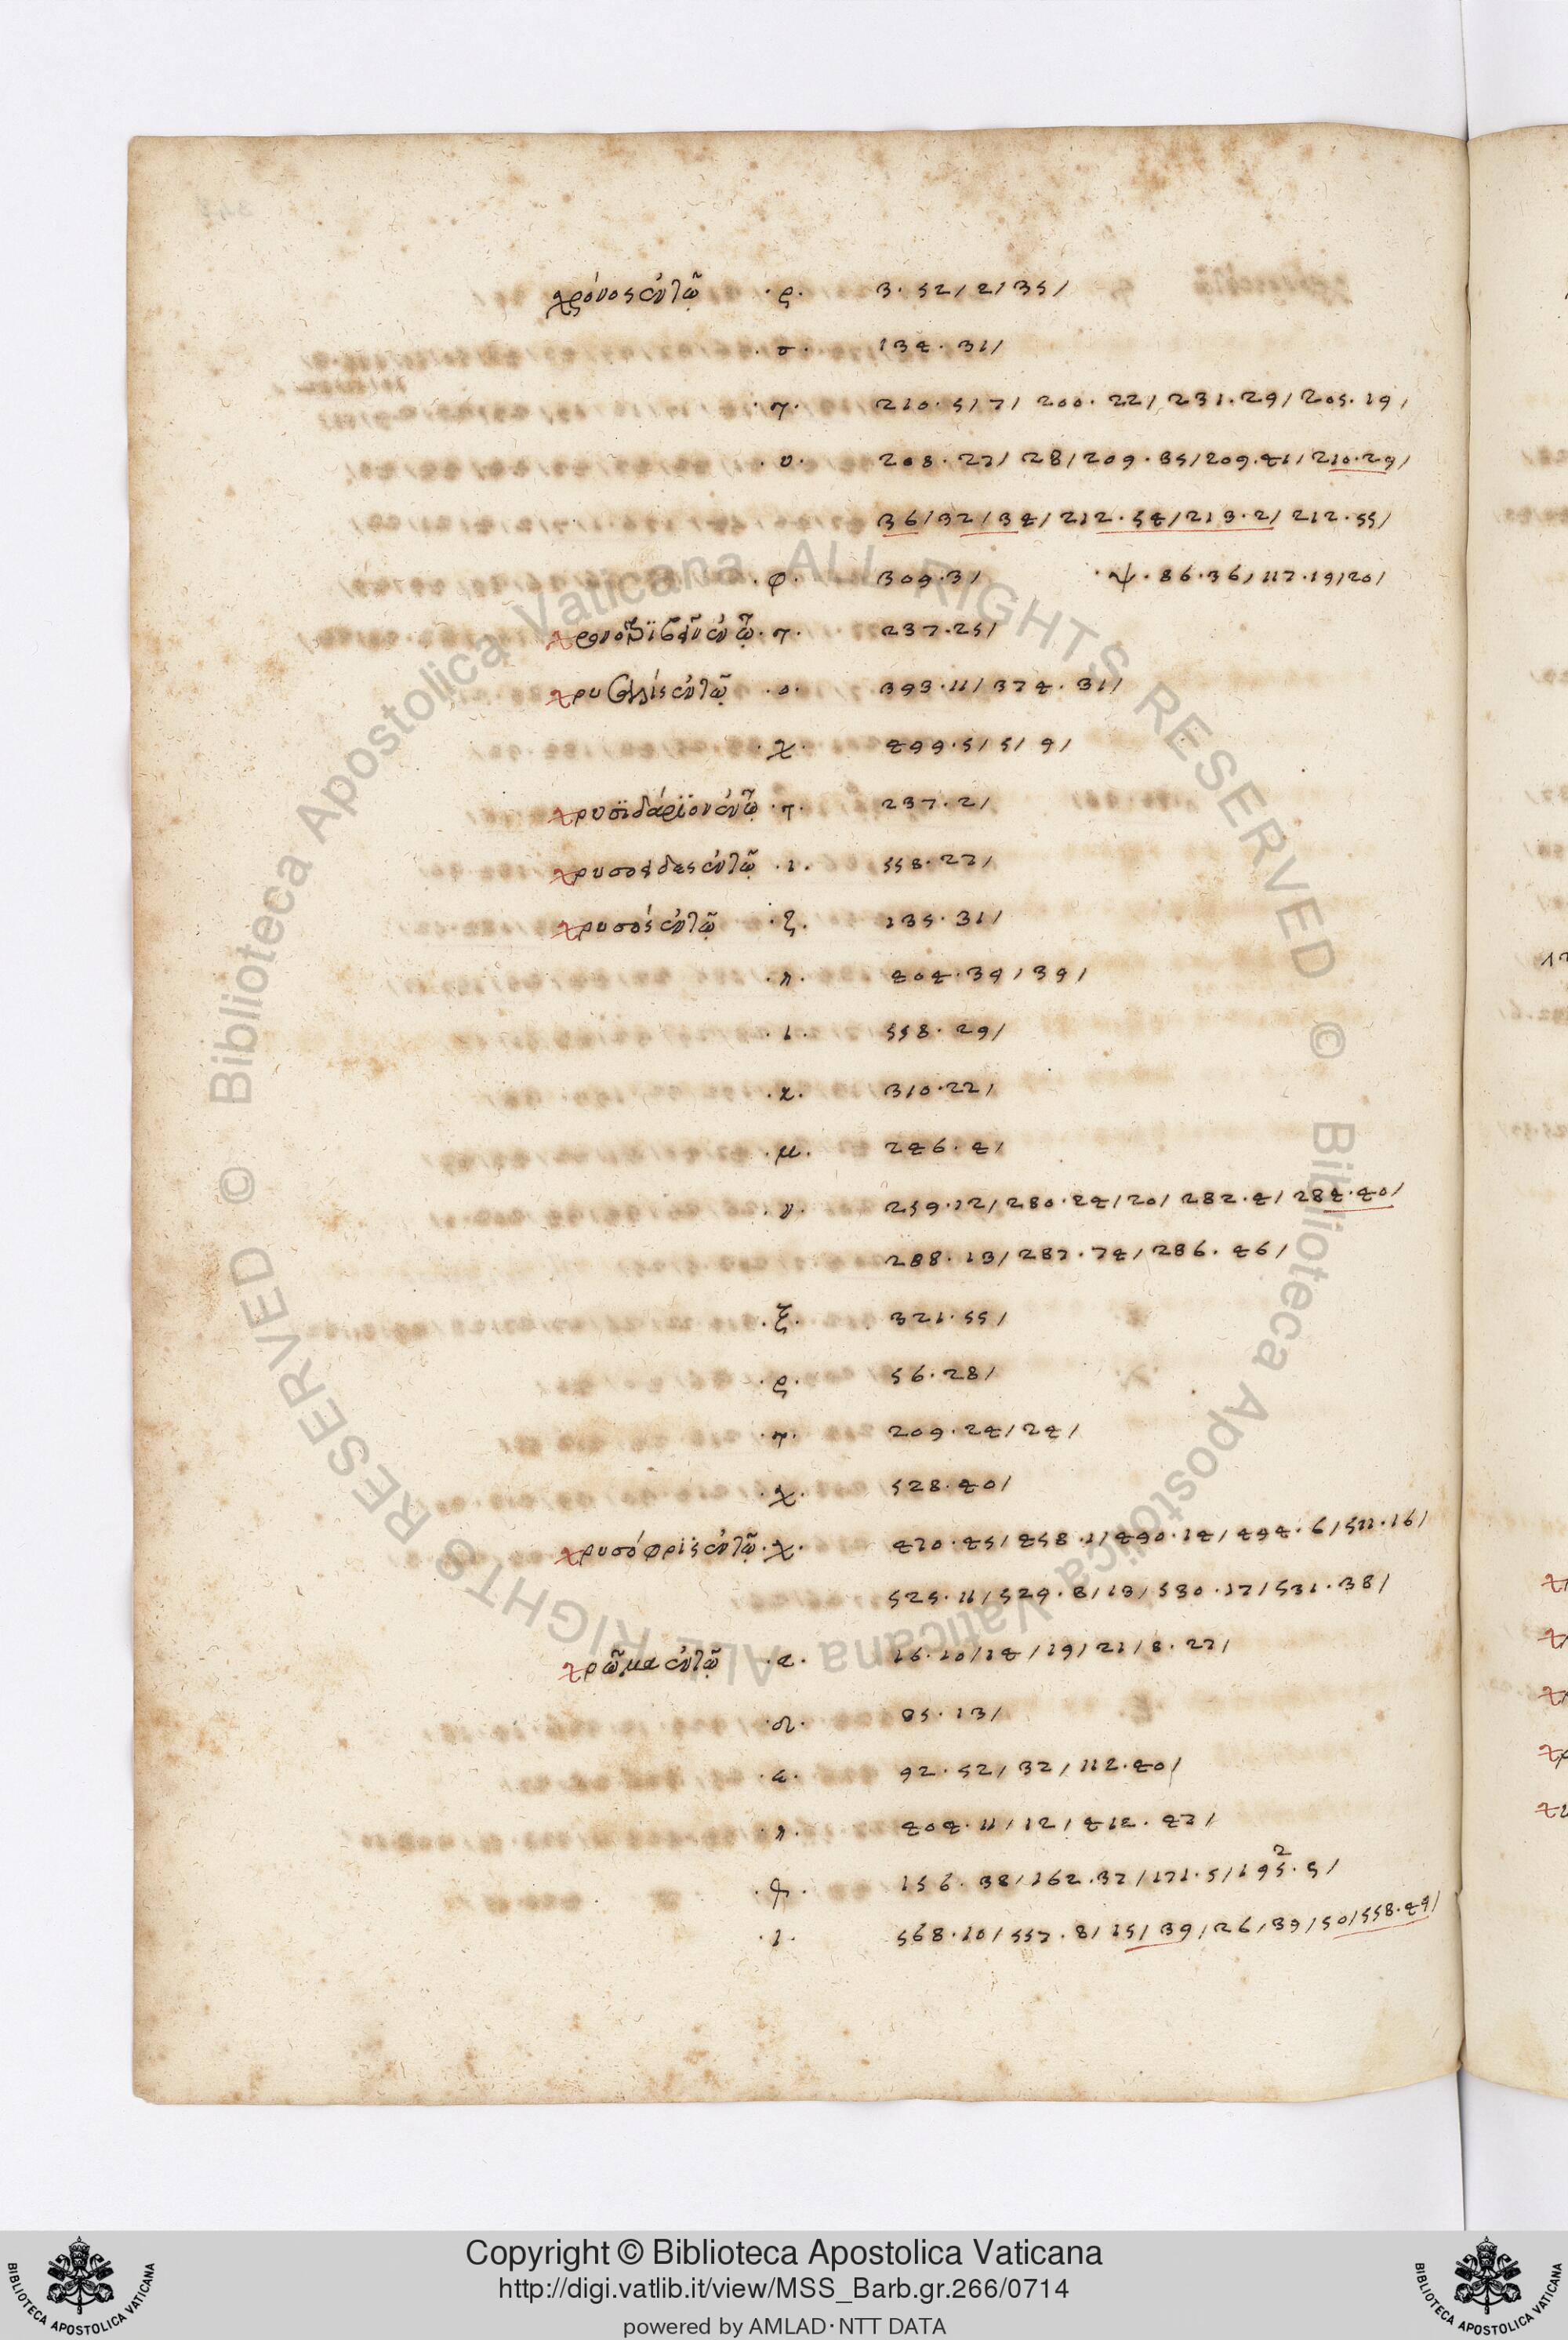 χρόνος ἐν τῷ ·ρ· 3·52/2/35/
·σ· 134·31/
·τ· 210·5/7/ 200·22/ 231·29/ 205·19/
·υ· 208·27/ 28/ 209·35/ 209·41/ 210·29/
36/ 32/ 34/ 212·54/ 213·2/ 212·55/
·φ· 309·3/ ·ψ· 86·36/ 117·19/20/
ἐν τῷ ·τ· 237·25/
ἐν τῷ ·ο· 393·11/ 374·31/
·χ· 499·5/5/9/
χρυσϊδάρϊον ἐν τῷ ·τ· 237·2/
ἐν τῷ ·ι· 558·27/
χρυσός ἐν τῷ ·ζ· 135·31/
·η· 404·39/39/
·ι· 558·29/
·κ· 310·22/
·μ· 246·4/
·ν· 259·12/ 280·24/20/ 282·4/ 284·40/
288·13/ 287·74/ 286·46/
·ξ· 321·55/
·ρ· 56·28/
·τ· 209·24/24/
·χ· 528·40/
χρυσόφρϊς ἐν τῷ ·χ· 470·45/ 458·1/ 490·14/ 494·6/ 511·16/
525·11/ 529·8/13/ 530·17/ 531·38/
χρῶμα ἐν τῷ ·α· 16·10/14/19/21/8·27/
·δ· 85·13/
·ε· 92·52/32/ 112·40/
·η· 404·11/12/ 412·47/
156·38/ 162·37/ 171·5/ 195·5/
2
·ι· 568·10/ 557·8/15/39/26/39/50/ 558·49/
Biblioteca Apostolica Vaticana ALL RIGHTS RESERVED ©
Biblioteca Apostolica Vaticana ALL RIGHTS RESERVED ©
Copyright © Biblioteca Apostolica Vaticana
http://digi.vatlib.it/view/MSS_Barb.gr.266/0714
powered by AMLAD·NTT DATA
BIBLIOTECA APOSTOLICA VATICANA
BIBLIOTECA APOSTOLICA VATICANA